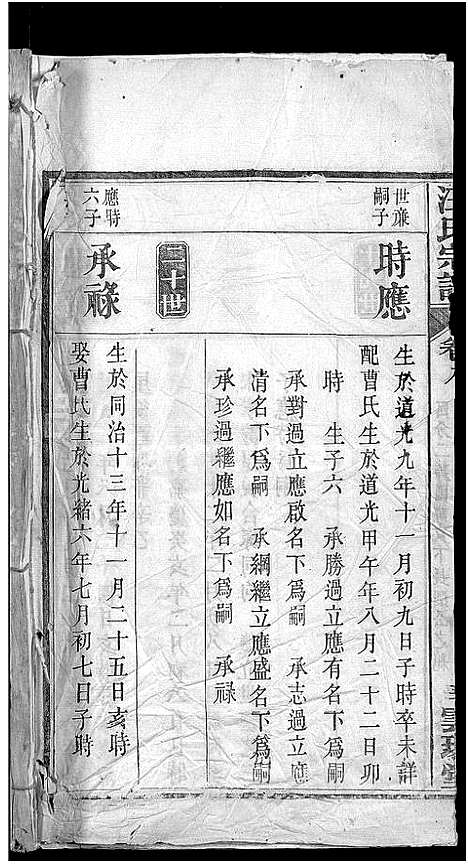 汪氏宗譜
卷八
世廉
嗣子
時應
生於道光九年十一月初九日子時卒未詳
配曹氏生於道光甲午年八月二十二日卯
時　生子六　承勝過立應有名下爲嗣
承對過立應啟名下爲嗣　承志過立應
清名下爲嗣　承綱繼立應盛名下爲嗣
承珍過繼應如名下爲嗣　承祿
二十世
應時
六子
承祿
生於同治十三年十一月二十五日亥時
娶曹氏生於光緒六年七月初七日子時